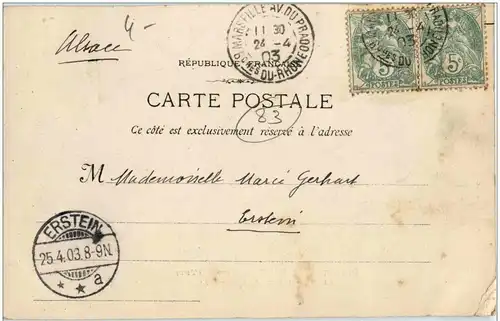 4-
Alsace
MARSEILLE AV. DU PRADO
11 30
24 -4
03
BCHES DU-RHONE
11
24
03
5
POSTES
5
POSTES
RÉPUBLIQUE FRANÇAISE
CARTE POSTALE
83
Ce côté est exclusivement réservé à l'adresse
M Mademoiselle Marie Gerhart
Erstein
ERSTEIN
25.4.03.8-9N.
* * a